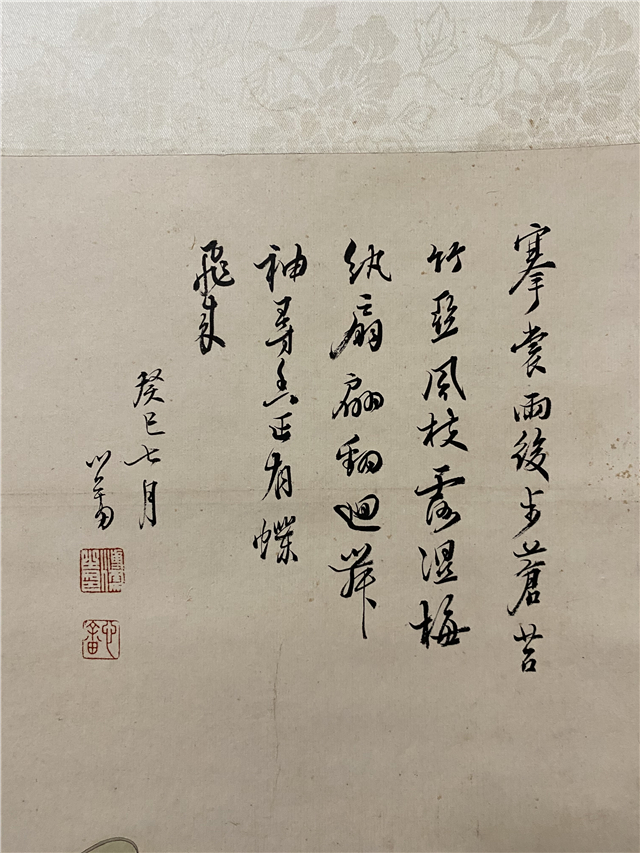 搴裳雨後步蒼苔
竹亞風枝露溼梅
紈扇翩翻迴舞
袖尋香正有蝶
飛來
癸巳七月
心畬